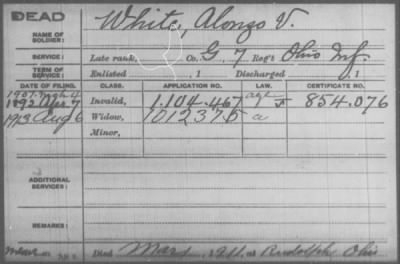 DEAD
NAME OF SOLDIER: White, Alonzo V.
SERVICE: Late rank, Co. G, 7 Reg't Ohio Inf.
TERM OF SERVICE: Enlisted , 1 Discharged , 1
DATE OF FILING. CLASS. APPLICATION NO. LAW. CERTIFICATE NO.
1907 4
1892 Apr 7 Invalid, 1.104.467 age 854.076
1913 Aug 6 Widow, 1012375 a
Minor,
ADDITIONAL SERVICES:
REMARKS:
Died Mar , 1911, at Rudolph Ohio